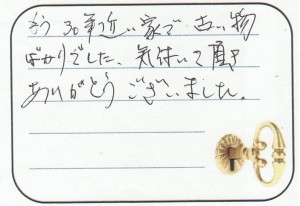 もう30年近い家で古い物
ばかりでした、気付いて頂き
ありがとうございました。